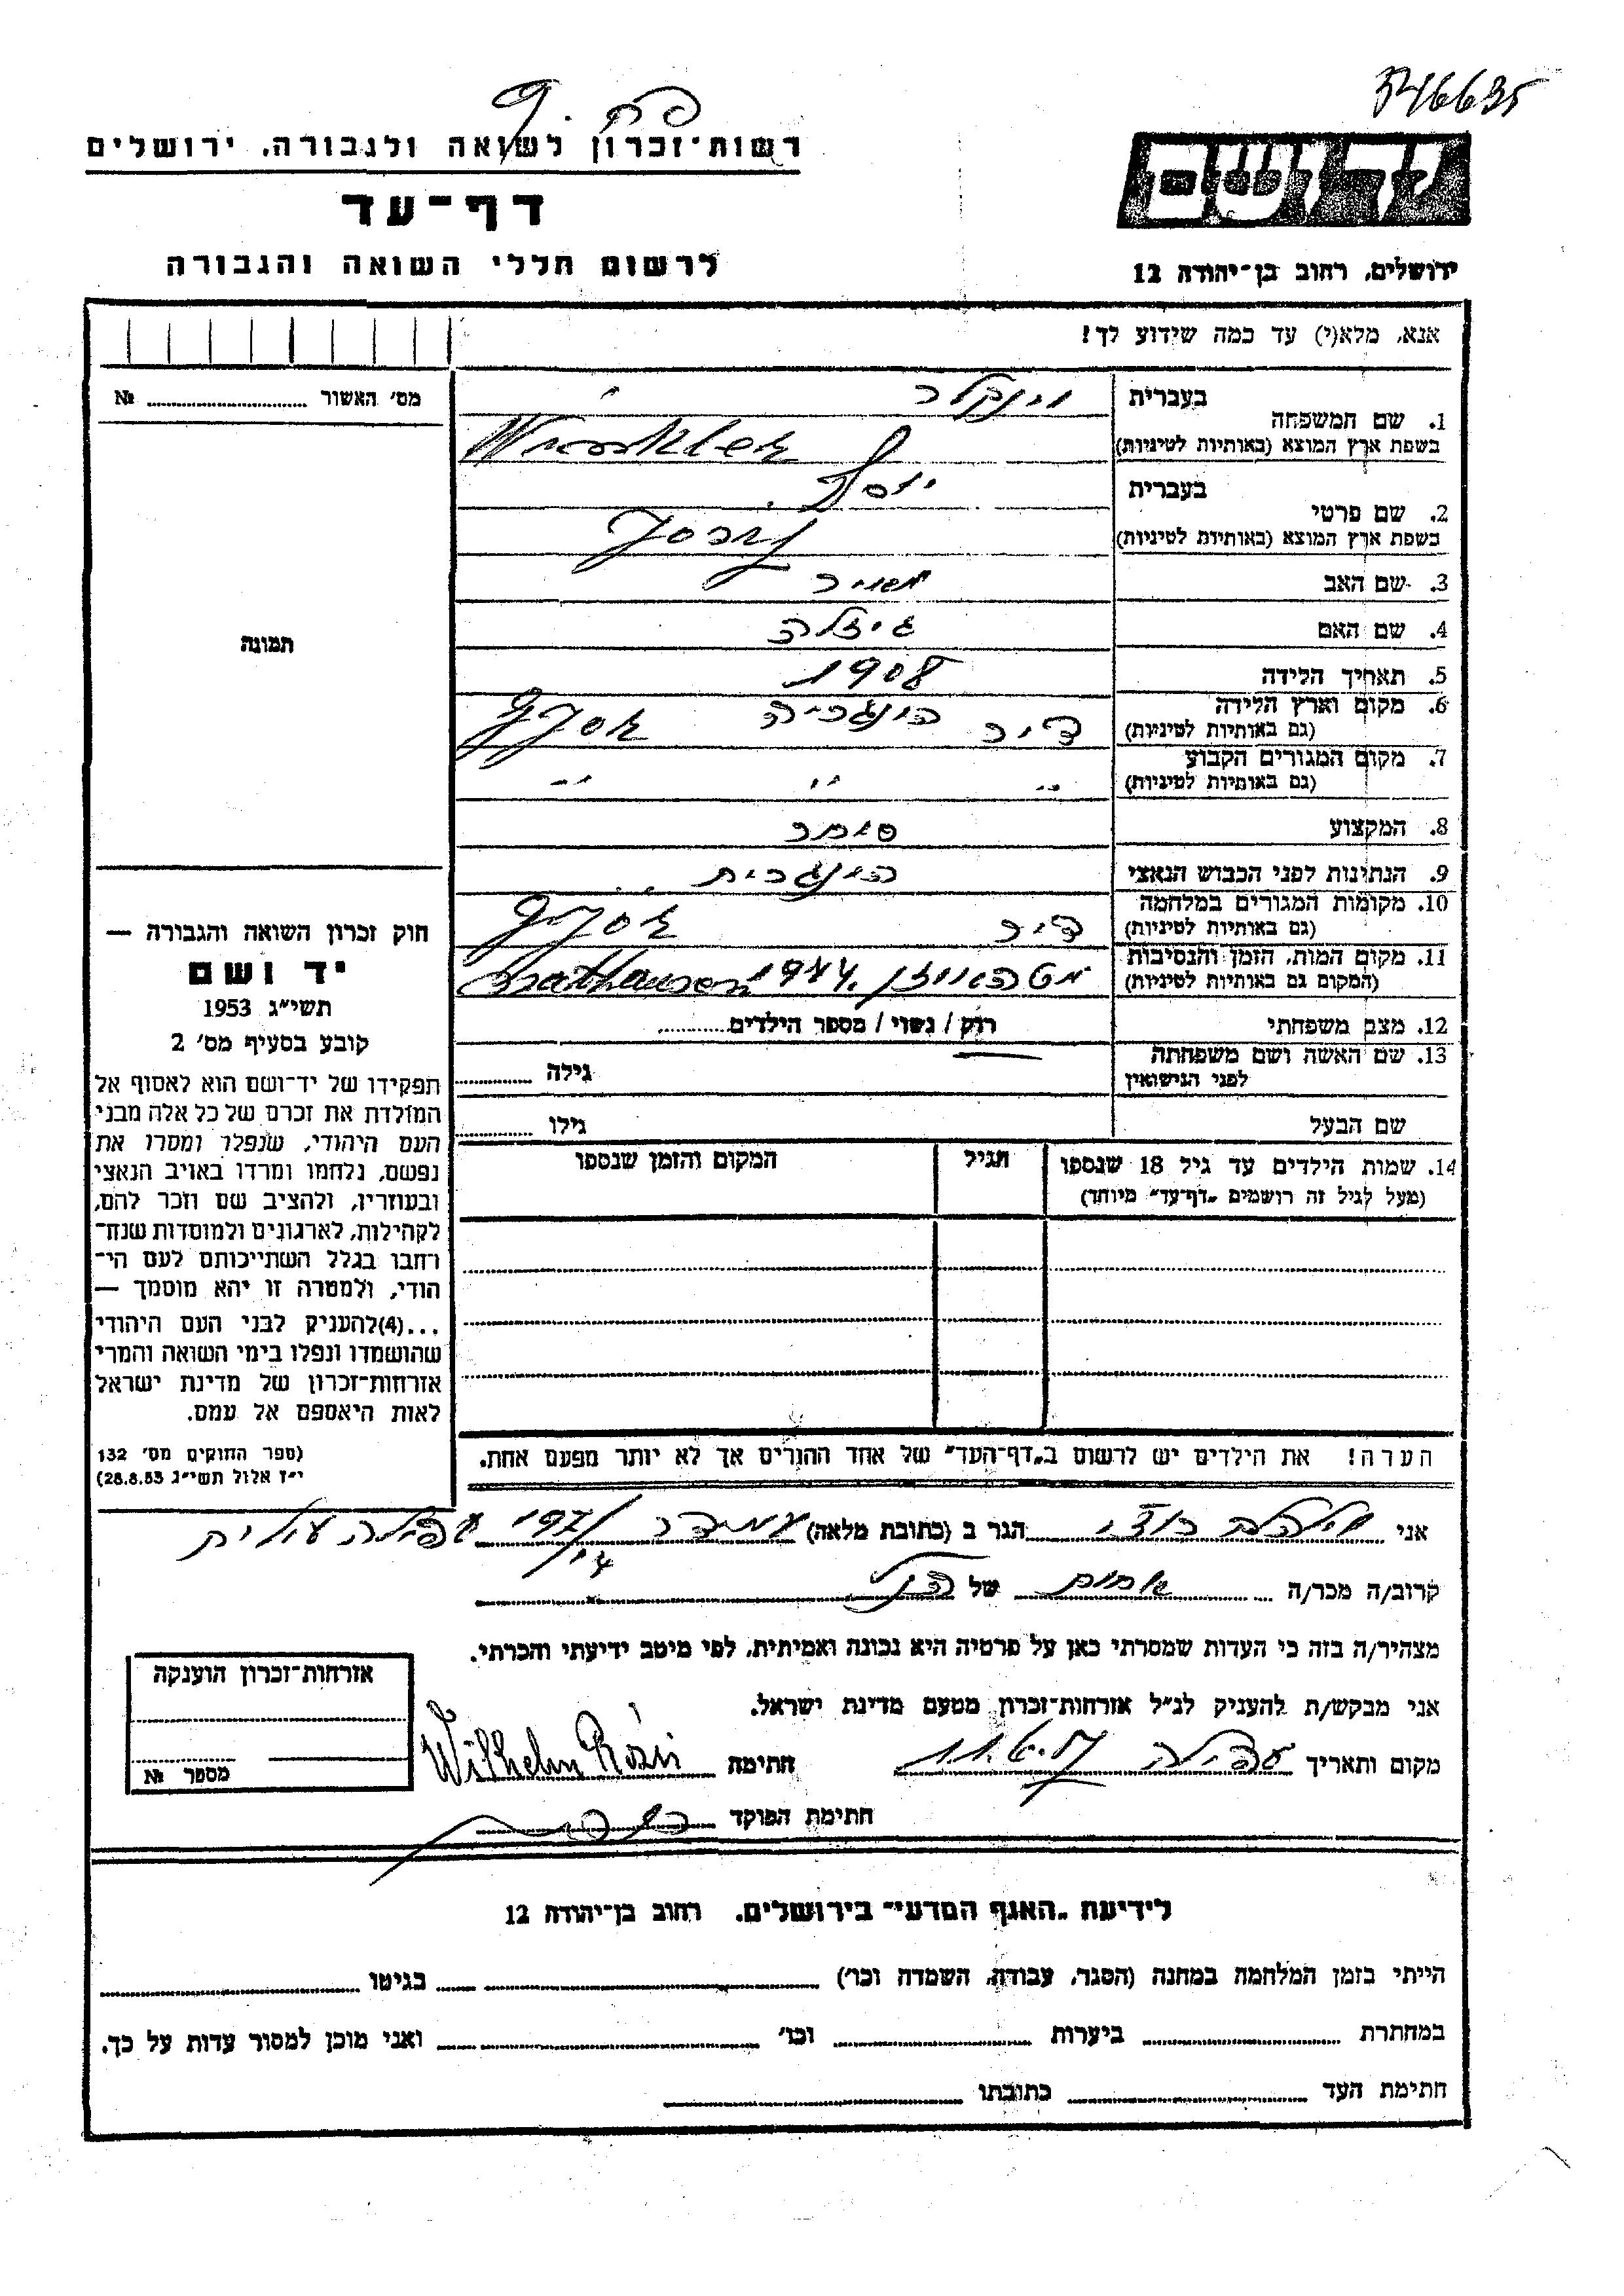 546635
רשות-זכרון לשואה ולגבורה. ירושלים
ידושם
דף-עד
לרשום חללי השואה והגבורה
ירושלים, רחוב בן-יהודה 12
אנא, מלא(י) עד כמה שידוע לך!
מס׳ האשור № 
בעברית וינקלר
1. שם המשפחה
בשפת ארץ המוצא (באותיות לטיניות) Winkler
בעברית יוסף
2. שם פרטי
בשפת ארץ המוצא (באותיות לטיניות) Jozsef
3. שם האב מאיר
4. שם האם גיזלה
5. תאריך הלידה 1908
6. מקום וארץ הלידה
(גם באותיות לטיניות) דיר הונגריה Györ
7. מקום המגורים הקבוע
(גם באותיות לטיניות) " " "
8. המקצוע סוחר
9. הנתינות לפני הכבוש הנאצי הונגרית
10. מקומות המגורים במלחמה
(גם באותיות לטיניות) דיר Györ
11. מקום המות, הזמן והנסיבות
(המקום גם באותיות לטיניות) מטהאוזן 1944. Mathausen
12. מצב משפחתי רוק / נשוי / מספר הילדים
13. שם האשה ושם משפחתה
לפני הנישואין גילה
שם הבעל גילו
14. שמות הילדים עד גיל 18 שנספו הגיל המקום והזמן שנספו
(מעל לגיל זה רושמים „דף-עד" מיוחד)
תמונה
חוק זכרון השואה והגבורה —
יד ושם
תשי״ג 1953
קובע בסעיף מס׳ 2
תפקידו של יד-ושם הוא לאסוף אל
המולדת את זכרם של כל אלה מבני
העם היהודי, שנפלו ומסרו את
נפשם, נלחמו ומרדו באויב הנאצי
ובעוזריו, ולהציב שם וזכר להם,
לקהילות, לארגונים ולמוסדות שנח-
רחבו בגלל השתייכותם לעם הי-
הודי, ולמטרה זו יהא מוסמך —
...(4)להעניק לבני העם היהודי
שהושמדו ונפלו בימי השואה והמרי
אזרחות-זכרון של מדינת ישראל
לאות היאספם אל עמם.
(ספר החוקים מס׳ 132
י״ז אלול תשי״ג 28.8.53)
הערה! את הילדים יש לרשום ב„דף-העד" של אחד ההורים אך לא יותר מפעם אחת.
אני וילהלם רוזי הגר ב (כתובת מלאה) עמידר 197/ עפולה עילית
קרוב/ה מכר/ה אחות של הנ״ל
מצהיר/ה בזה כי העדות שמסרתי כאן על פרטיה היא נכונה ואמיתית, לפי מיטב ידיעתי והכרתי.
אני מבקש/ת להעניק לנ״ל אזרחות-זכרון מטעם מדינת ישראל.
מקום ותאריך עפולה 11.6.57 חתימה Wilhelm Rózsi
חתימת הפוקד
אזרחות-זכרון הוענקה
מספר №
לידיעת „האגף המדעי" בירושלים. רחוב בן-יהודה 12
הייתי בזמן המלחמה במחנה (הסגר, עבודה, השמדה וכו׳) בגיטו
במחתרת ביערות וכו׳ ואני מוכן למסור עדות על כך.
חתימת העד כתובתו